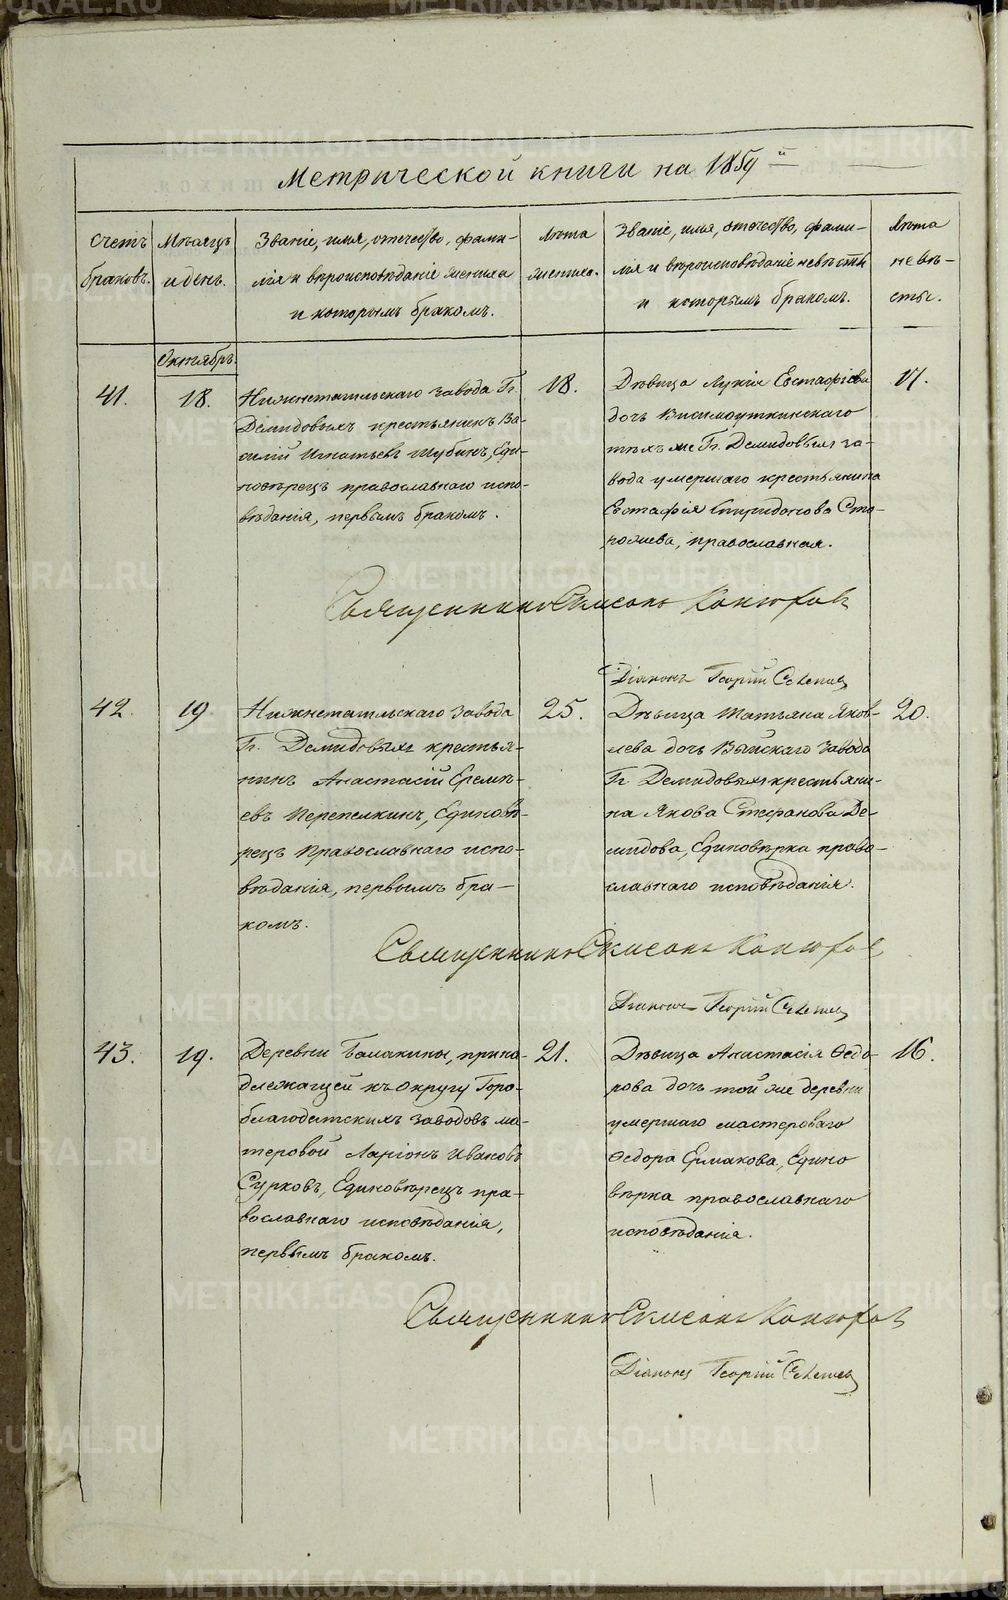 Метрической книги на 1859й
Счетъ браковъ.
Мѣсяцъ и день.
Званіе, имя, отечество, фами-
лія и вѣроисповѣданіе жениха
и которымъ бракомъ.
Лѣта жениха.
Званіе, имя, отечество, фами-
лія и вѣроисповѣданіе невѣсты
и которымъ бракомъ.
Лѣта
невѣ-
сты.
Октябрь.
41.
18.
Нижнетагильскаго завода Гг.
Демидовыхъ крестьянинъ Ва-
силій Игнатьевъ Шубинъ, Еди-
новѣрецъ православнаго испо-
вѣданія, первымъ бракомъ.
18.
Дѣвица Лукія Евстафіева
дочь Висимоуткинскаго
тѣхъ же Гг. Демидовыхъ за-
вода умершаго крестьянина
Евстафія Спиридонова Сто-
рожева, православная.
17.
Священникъ Симеонъ Конюховъ
Діаконъ Георгій
42.
19
Нижнетагильскаго завода
Гг. Демидовыхъ крестья-
нинъ Анастасій Еремѣ-
евъ Перепелкинъ, Единовѣ-
рецъ Православнаго испо-
вѣданія, первымъ бра-
комъ.
25.
Дѣвица Татьяна Яков-
лева дочь Выйскаго завода
Гг Демидовыхъ крестьяни-
на Якова Стефанова Де-
мидова, Единовѣрка право-
славнаго исповѣданія.
20.
Священникъ Симеонъ Конюховъ
Діаконъ Георгій
43.
19.
Деревни Балакины, прина-
длежащей къ округу Горо-
благодатскихъ заводовъ ма-
стеровой Ларіонъ Ивановъ
Сурковъ, Единовѣрецъ пра-
вославнаго исповѣданія,
первымъ бракомъ.
21.
Дѣвица Анастасія Ѳедо-
рова дочь той же деревни
умершаго мастероваго
Ѳедора Ермакова, Едино
вѣрка православнаго
исповѣданія.
16.
Священникъ Симеонъ Конюховъ
Діаконъ Георгій
METRIKI.GASO-URAL.RU